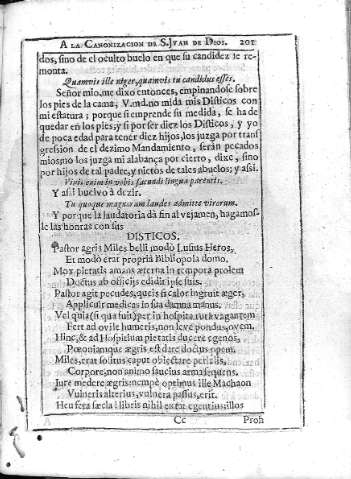 A LA CANONIZACION DE S. JVAN DE DIOS. 201
dos, sino de el oculto buelo en que su candidez le re-
monta.
Quamvis ille niger, quamvis tu candidus esses.
Señor mio, me dixo entonces, empinandose sobre
los pies de la cama; V.md. no mida mis Disticos con
mi estatura; porque si emprende su medida, se ha de
quedar en los pies; y si por ser diez los Disticos, y yo
de poca edad para tener diez hijos, los juzga por transf
gresion de el dezimo Mandamiento, serán pecados
mios; no los juzga mi alabança por cierto, dixe, sino
por hijos de tal padre, y nietos de tales abuelos; y assi.
Vivis enim in vobis facundi lingua parentis.
Y assi buelvo à dezir.
Tu quoque magnarum laudes admitte virorum.
Y porque la laudatoria dà fin al vejamen, hagamos-
le las honras con sus
DISTICOS.
Pastor agris Miles belli modò Lusius Heros,
Et modò erat propria Bibliopola domo.
Mox pietatis amans æterna in tempora prolem
Doctus ab officijs edidit ipse suis.
Pastor agit pecudes, queis si calor ingruit æger,
Applicuit medicas in sua damna manus.
Vel quia (si qua fuit) per inhospita rura vagantem
Fert ad ovile humeris, non leve pondus, ovem.
Hinc, & ad Hospitium pietatis ducere egenos,
Pœoniamque ægris est dare doctus opem.
Miles, erat solitus caput obiectare periclis,
Corpore, non animo saucius arma sequens.
Iure medere ægris nempè optimus ille Machaon
Vulneris alterius, vulnera passus, erit.
Heu fera sæcla! libris nihil extat egentius: illos
Cc Prosi